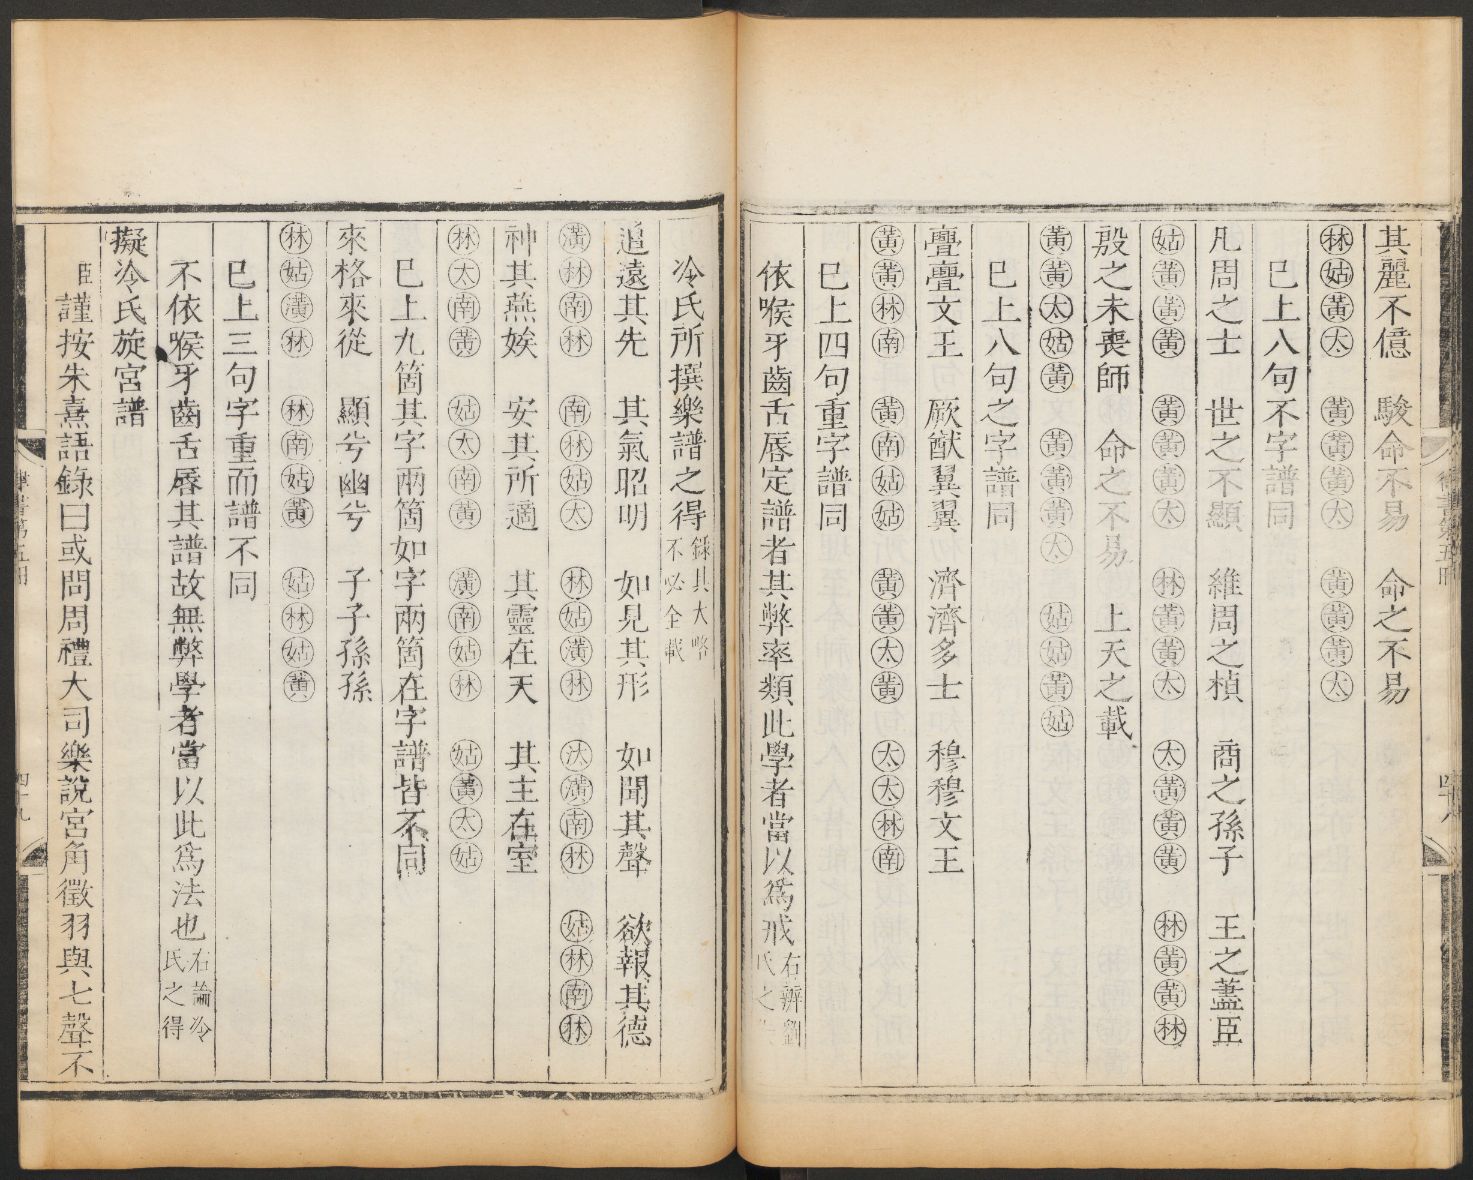 其麗不億　駿命不易　命之不易
林姑黃太　黃黃黃太　黃黃黃太
巳上八句不字譜同
凡周之士　世之不顯　維周之楨　商之孫子　王之藎臣
姑黃黃黃　黃黃黃太　林黃黃太　太黃黃黃　林黃黃林
殷之未喪師　命之不易　上天之載
黃黃太姑黃　黃黃黃太　姑姑黃姑
巳上八句之字譜同
亹亹文王　厥猷翼翼　濟濟多士　穆穆文王
黃黃林南　黃南姑姑　黃黃太黃　太太林南
巳上四句重字譜同
依喉牙齒舌唇定譜者其弊率類此學者當以爲戒右辨劉氏之
冷氏所撰樂譜之得錄其大略不必全載
追遠其先　其氣昭明　如見其形　如聞其聲　欲報其德
潢林南林　南林姑太　林姑潢林　汰潢南林　姑林南林
神其燕娭　安其所適　其靈在天　其主在室
林太南黃　姑太南黃　潢南姑林　姑黃太姑
巳上九箇其字兩箇如字兩箇在字譜皆不同
來格來從　顯兮幽兮　子子孫孫
林姑潢林　林南姑黃　姑林姑黃
巳上三句字重而譜不同
不依喉牙齒舌唇其譜故無弊學者當以此爲法也右論冷氏之得
擬冷氏旋宮譜
臣謹按朱熹語錄曰或問周禮大司樂說宮角徵羽與七聲不